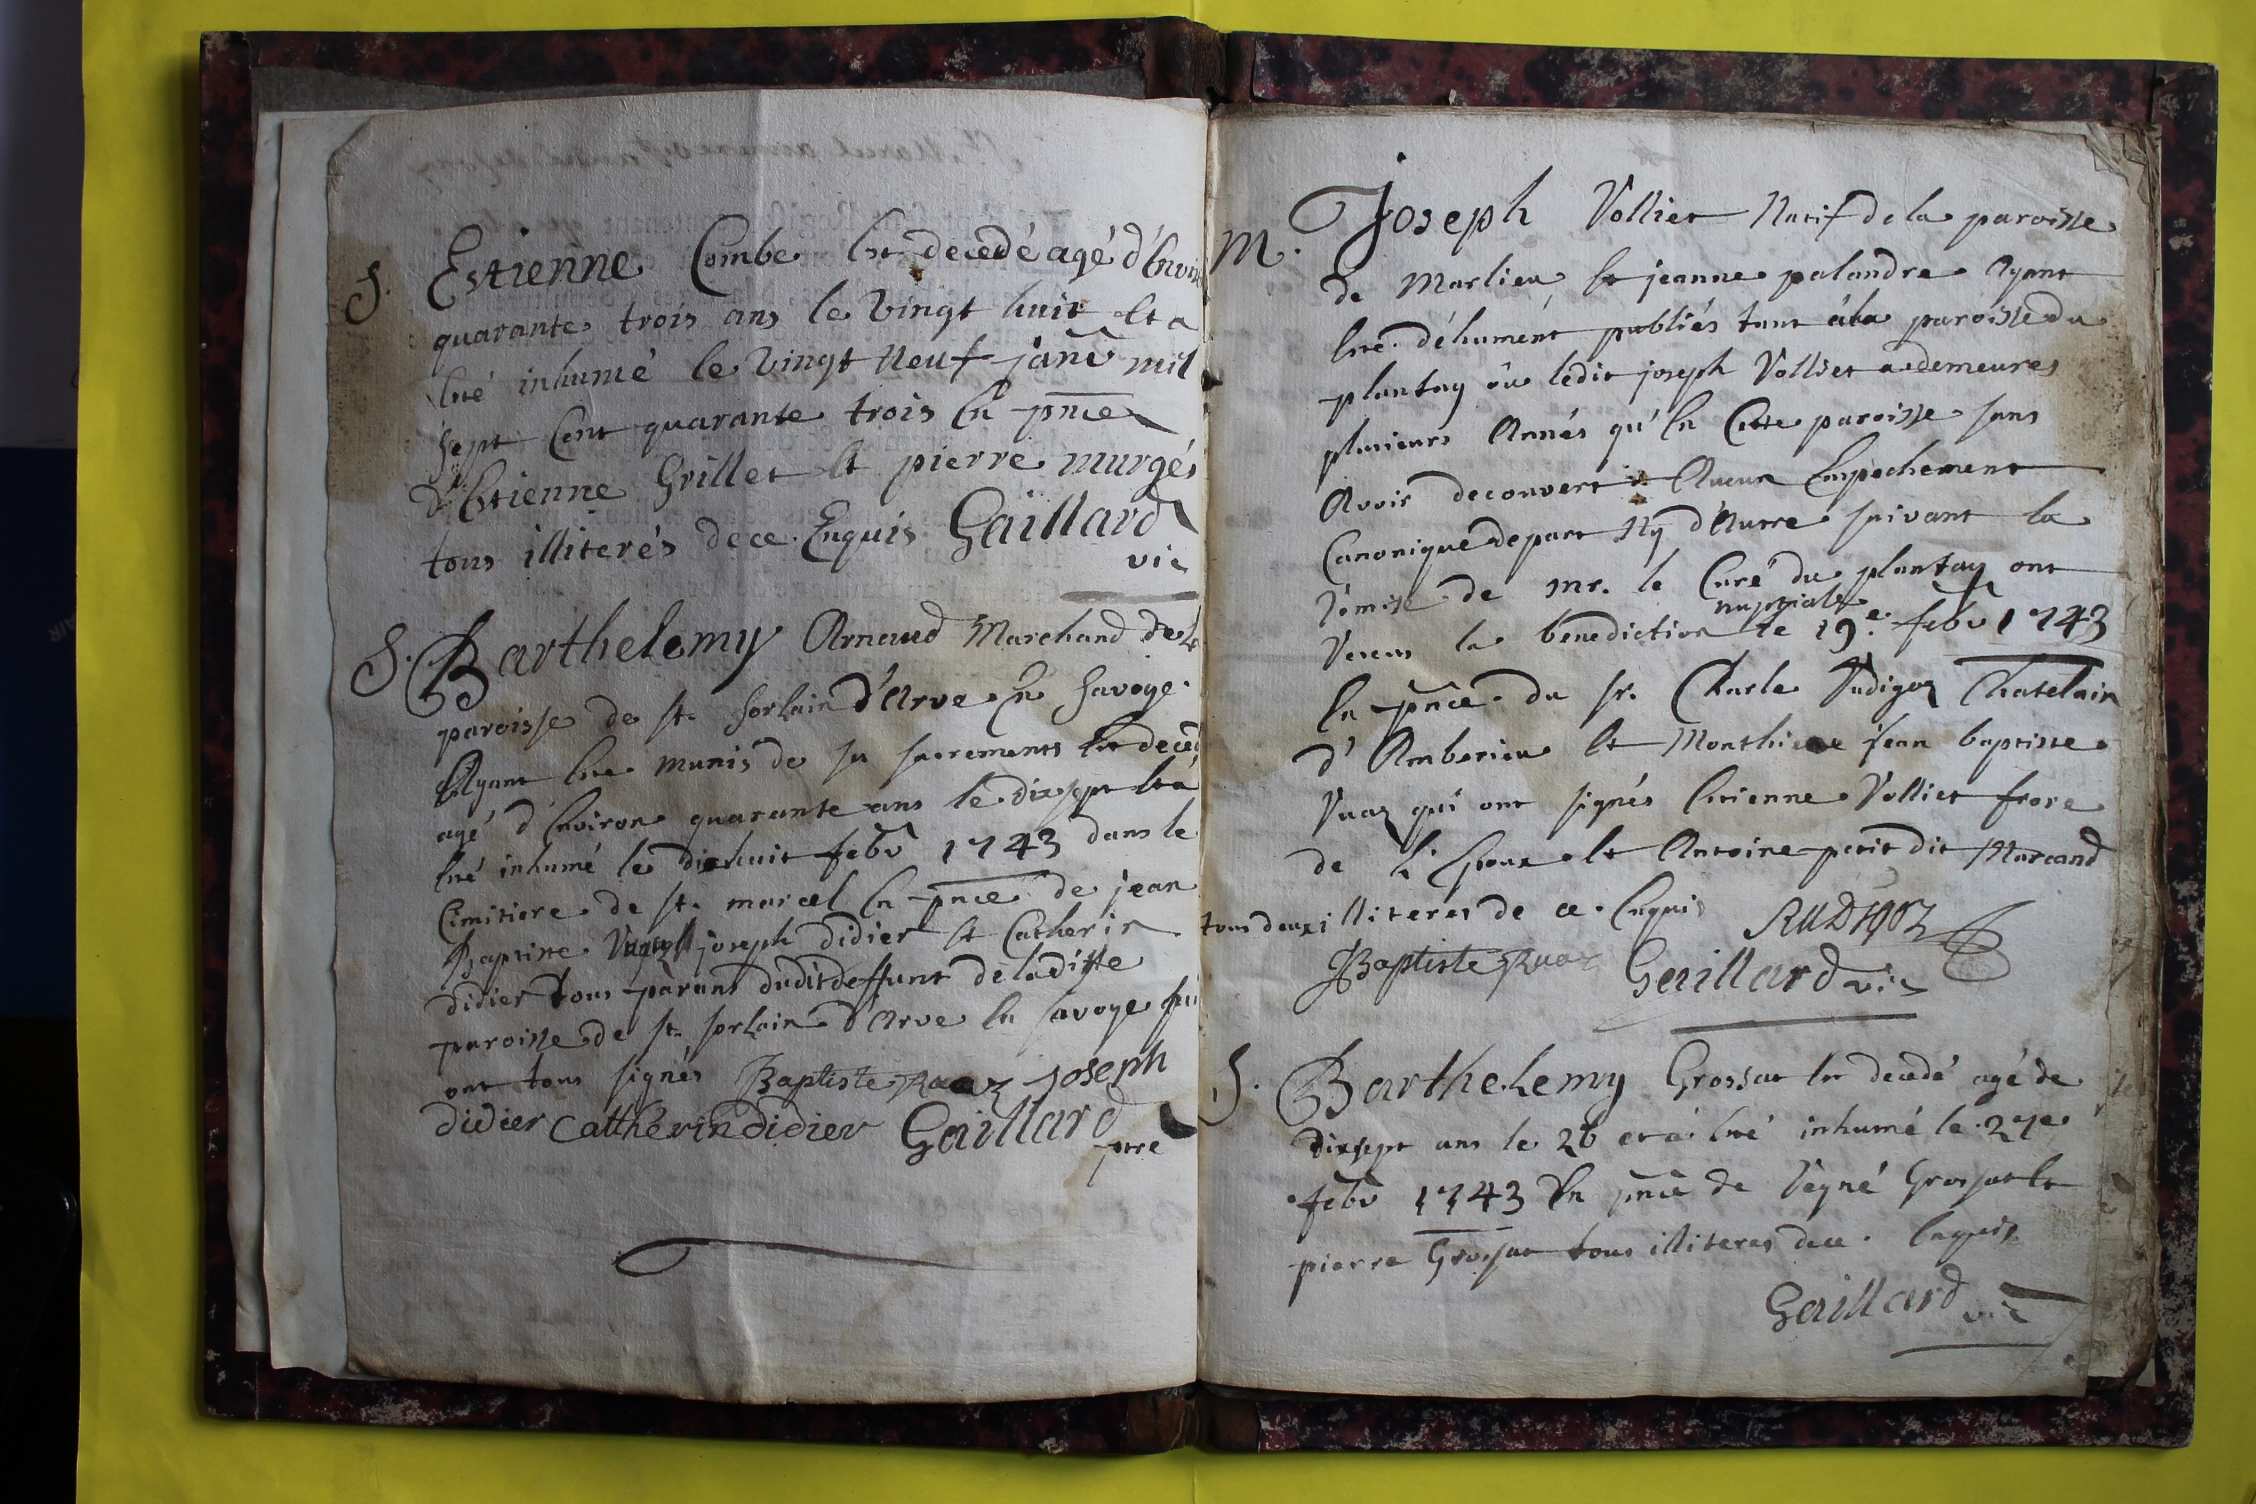 S. Estienne Combe Est decedé agé d'Enviro
quarante trois ans le vingt huit Et a
Eté inhumé le vingt Neuf janv mil
sept Cent quarante trois En pnce
d'Estienne Grillet Et pierre murgés
tous illiterés de ce Enquis Gaillard
vic
S. Barthelemy Arnaud Marchand de la
paroisse de st. Sorlain d'Arve En Savoye
Ayant Ete munis de sacrements Est decedé
agé d'Environ quarante ans le dix sept Et a
Eté inhumé le dixhuit febv 1743 dans le
Cimitiere de st. marcel En pnce de jean
Baptiste joseph didier Et Catherin
didier tous parans dudit deffunt de la ditte
paroisse de st. sorlain d'Arve En savoye qui
ont tous signés Baptiste Ruaz joseph
didier Cathérin didier Gaillard
ptre
M. Joseph Vollier Natif de la paroisse
de Marlieu Et jeanne palandre Ayant
Eté publiés tant à la paroisse du
plantay où ledit joseph Vollier a demeures
plusieurs Annés qu'En Cette paroisse sans
Avoir decouvert Aucun Empechement
Canonique de part Ny d'Autre suivant la
remise de mr. le Curé du plantay ont
nuptiale
receus la benediction le 19e. febv 1743
En pnce du sr. Charle Rudigoz Chatelain
d'Amberieu Et Monthieu jean baptiste
Ruaz qui ont signés Etienne Vollier frere
de l'Epoux Et Antoine petit dit Marcand
tous deux illiteres de ce Enquis RUDIGOZ
JBaptiste Ruaz Gaillard vic
S. Barthelemy Grossat Est decedé agé de
dixsept ans le 26 et a Eté inhumé le 27e
febv 1743 En pnce de Grossat Et
pierre Grossat tous illiteres de ce Enquis
Gaillard vic